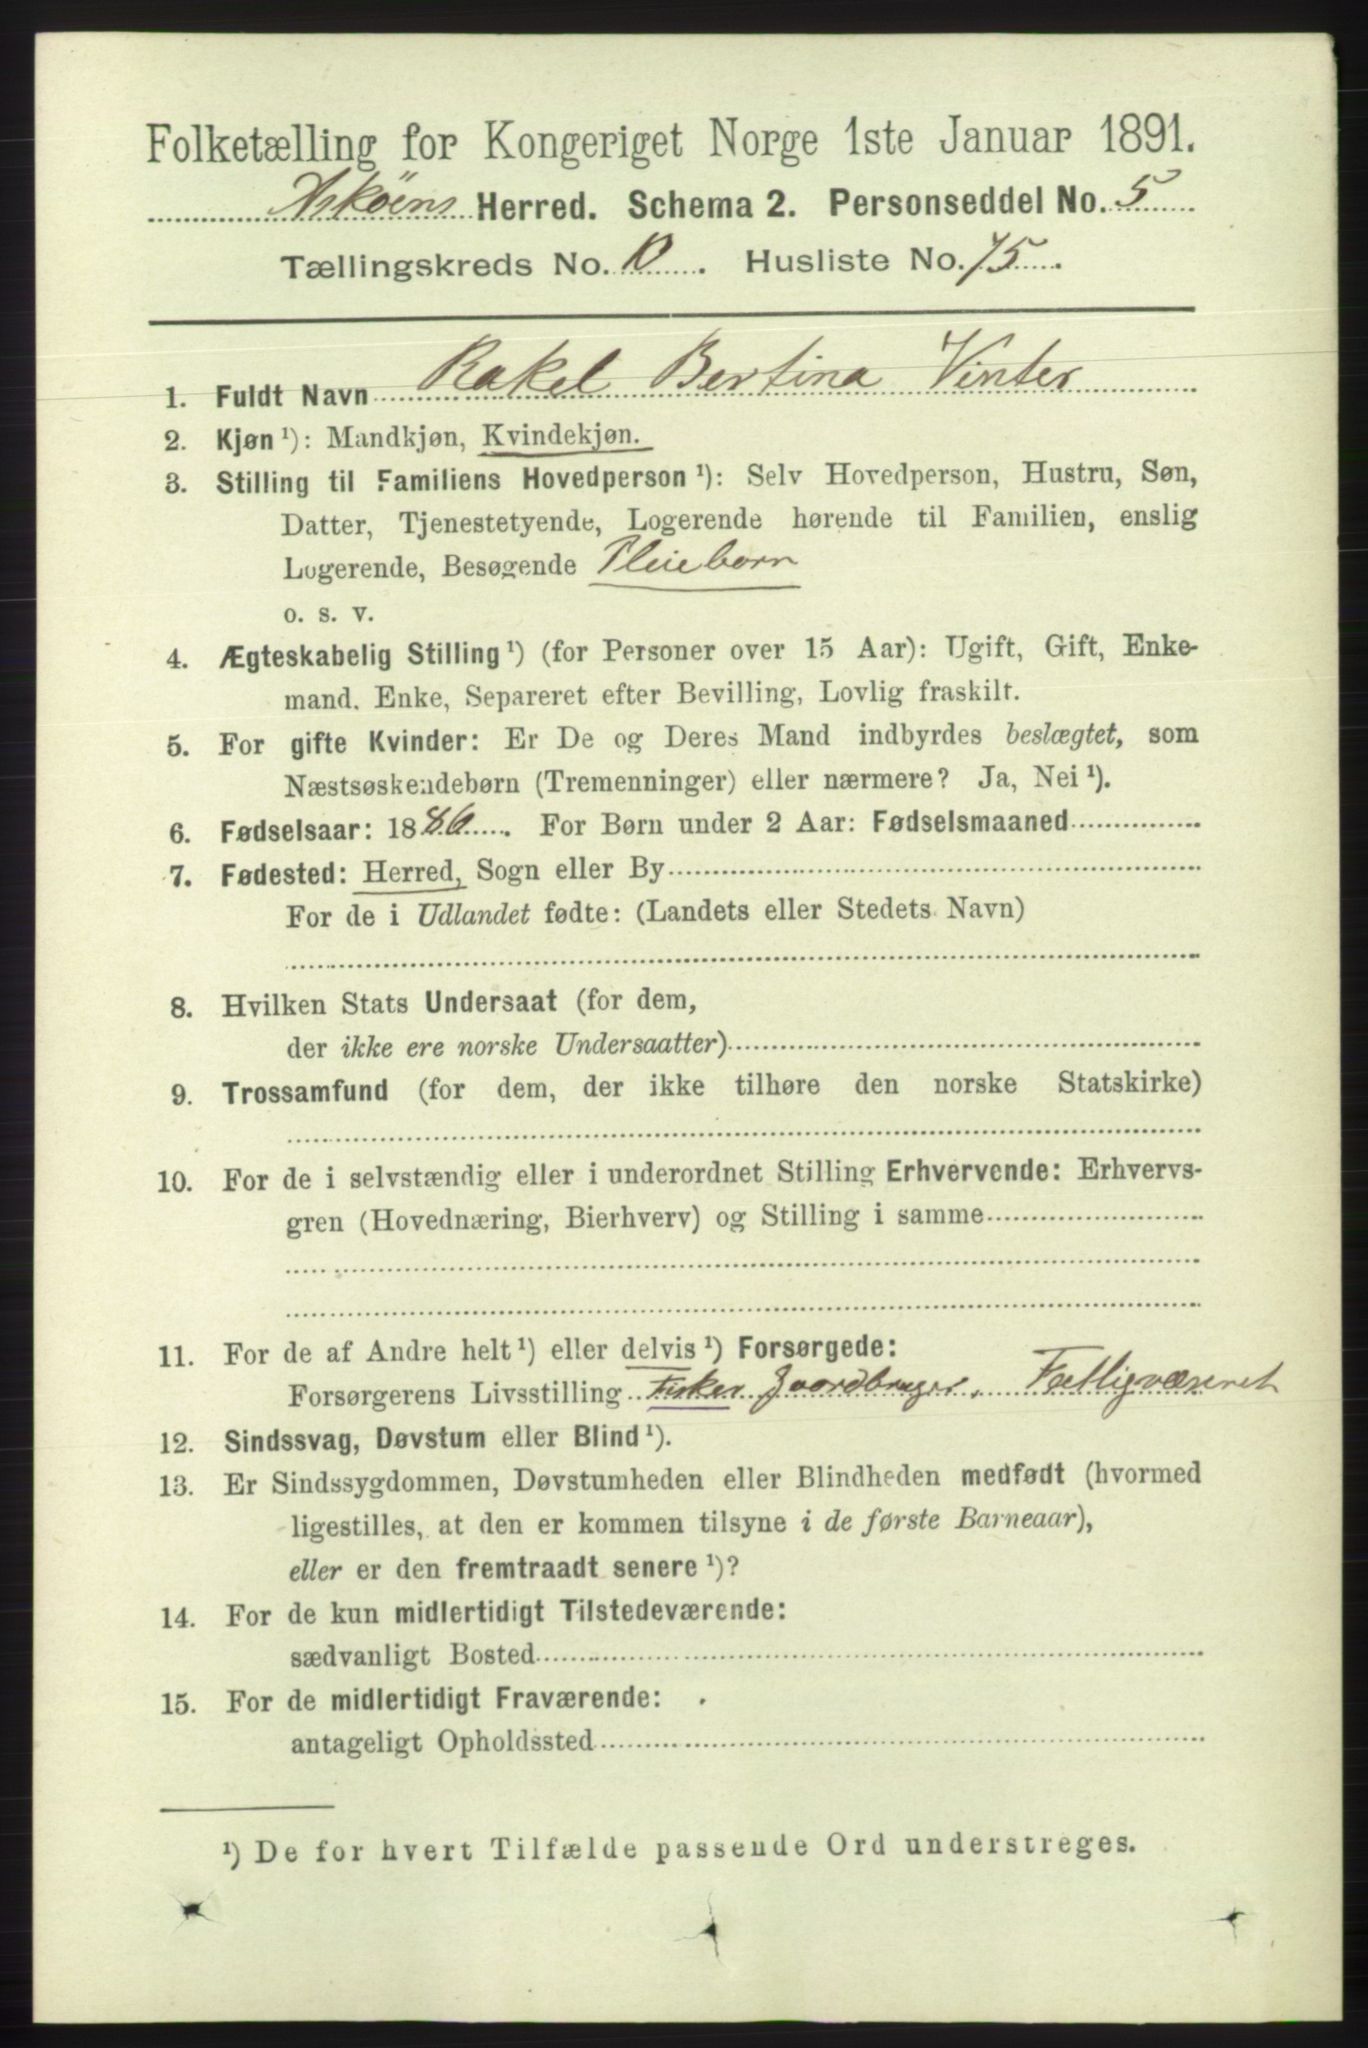 Folketælling for Kongeriget Norge 1ste Januar 1891.
Askøens Herred. Schema 2. Personseddel No. 5
Tællingskreds No. 10. Husliste No. 75.
1. Fuldt Navn Rakel Bertina Vinter
2. Kjøn ¹): Mandkjøn, Kvindekjøn.
3. Stilling til Familiens Hovedperson ¹): Selv Hovedperson, Hustru, Søn,
Datter, Tjenestetyende, Logerende hørende til Familien, enslig
Logerende, Besøgende Pleiebarn
o. s. v.
4. Ægteskabelig Stilling ¹) (for Personer over 15 Aar): Ugift, Gift, Enke-
mand, Enke, Separeret efter Bevilling, Lovlig fraskilt.
5. For gifte Kvinder: Er De og Deres Mand indbyrdes beslægtet, som
Næstsøskendebørn (Tremenninger) eller nærmere? Ja, Nei ¹).
6. Fødselsaar: 1886. For Børn under 2 Aar: Fødselsmaaned
7. Fødested: Herred, Sogn eller By
For de i Udlandet fødte: (Landets eller Stedets Navn)
8. Hvilken Stats Undersaat (for dem,
der ikke ere norske Undersaatter)
9. Trossamfund (for dem, der ikke tilhøre den norske Statskirke)
10. For de i selvstændig eller i underordnet Stilling Erhvervende: Erhvervs-
gren (Hovednæring, Bierhverv) og Stilling i samme
11. For de af Andre helt ¹) eller delvis ¹) Forsørgede:
Forsørgerens Livsstilling Fisker Jordbruger, Fattigvæsenet
12. Sindssvag, Døvstum eller Blind ¹).
13. Er Sindssygdommen, Døvstumheden eller Blindheden medfødt (hvormed
ligestilles, at den er kommen tilsyne i de første Barneaar),
eller er den fremtraadt senere ¹)?
14. For de kun midlertidigt Tilstedeværende:
sædvanligt Bosted
15. For de midlertidigt Fraværende:
antageligt Opholdssted
¹) De for hvert Tilfælde passende Ord understreges.